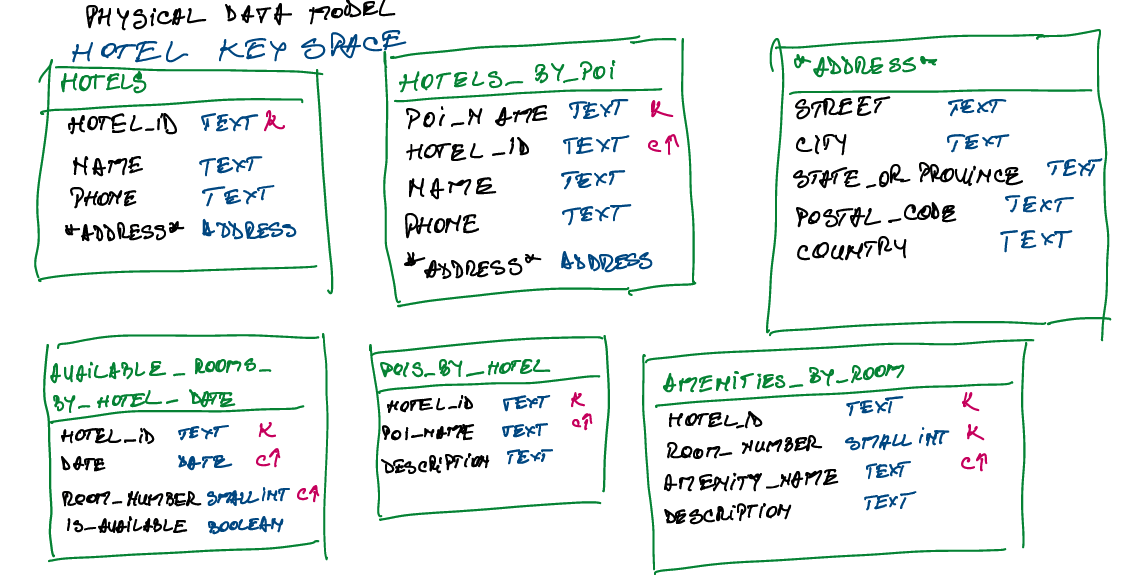 PHYSICAL DATA MODEL
HOTEL KEY SPACE
HOTELS
HOTEL_ID TEXT K
NAME TEXT
PHONE TEXT
*ADDRESS* ADDRESS
HOTELS_BY_POI
POI_NAME TEXT K
HOTEL_ID TEXT C↑
NAME TEXT
PHONE TEXT
*ADDRESS* ADDRESS
*ADDRESS*
STREET TEXT
CITY TEXT
STATE_OR PROVINCE TEXT
POSTAL_CODE TEXT
COUNTRY TEXT
AVAILABLE_ROOMS_
BY_HOTEL_DATE
HOTEL_ID TEXT K
DATE DATE C↑
ROOM_NUMBER SMALLINT C↑
IS_AVAILABLE BOOLEAN
POIS_BY_HOTEL
HOTEL_ID TEXT K
POI_NAME TEXT C↑
DESCRIPTION TEXT
AMENITIES_BY_ROOM
HOTEL_ID TEXT K
ROOM_NUMBER SMALLINT K
AMENITY_NAME TEXT C↑
DESCRIPTION TEXT